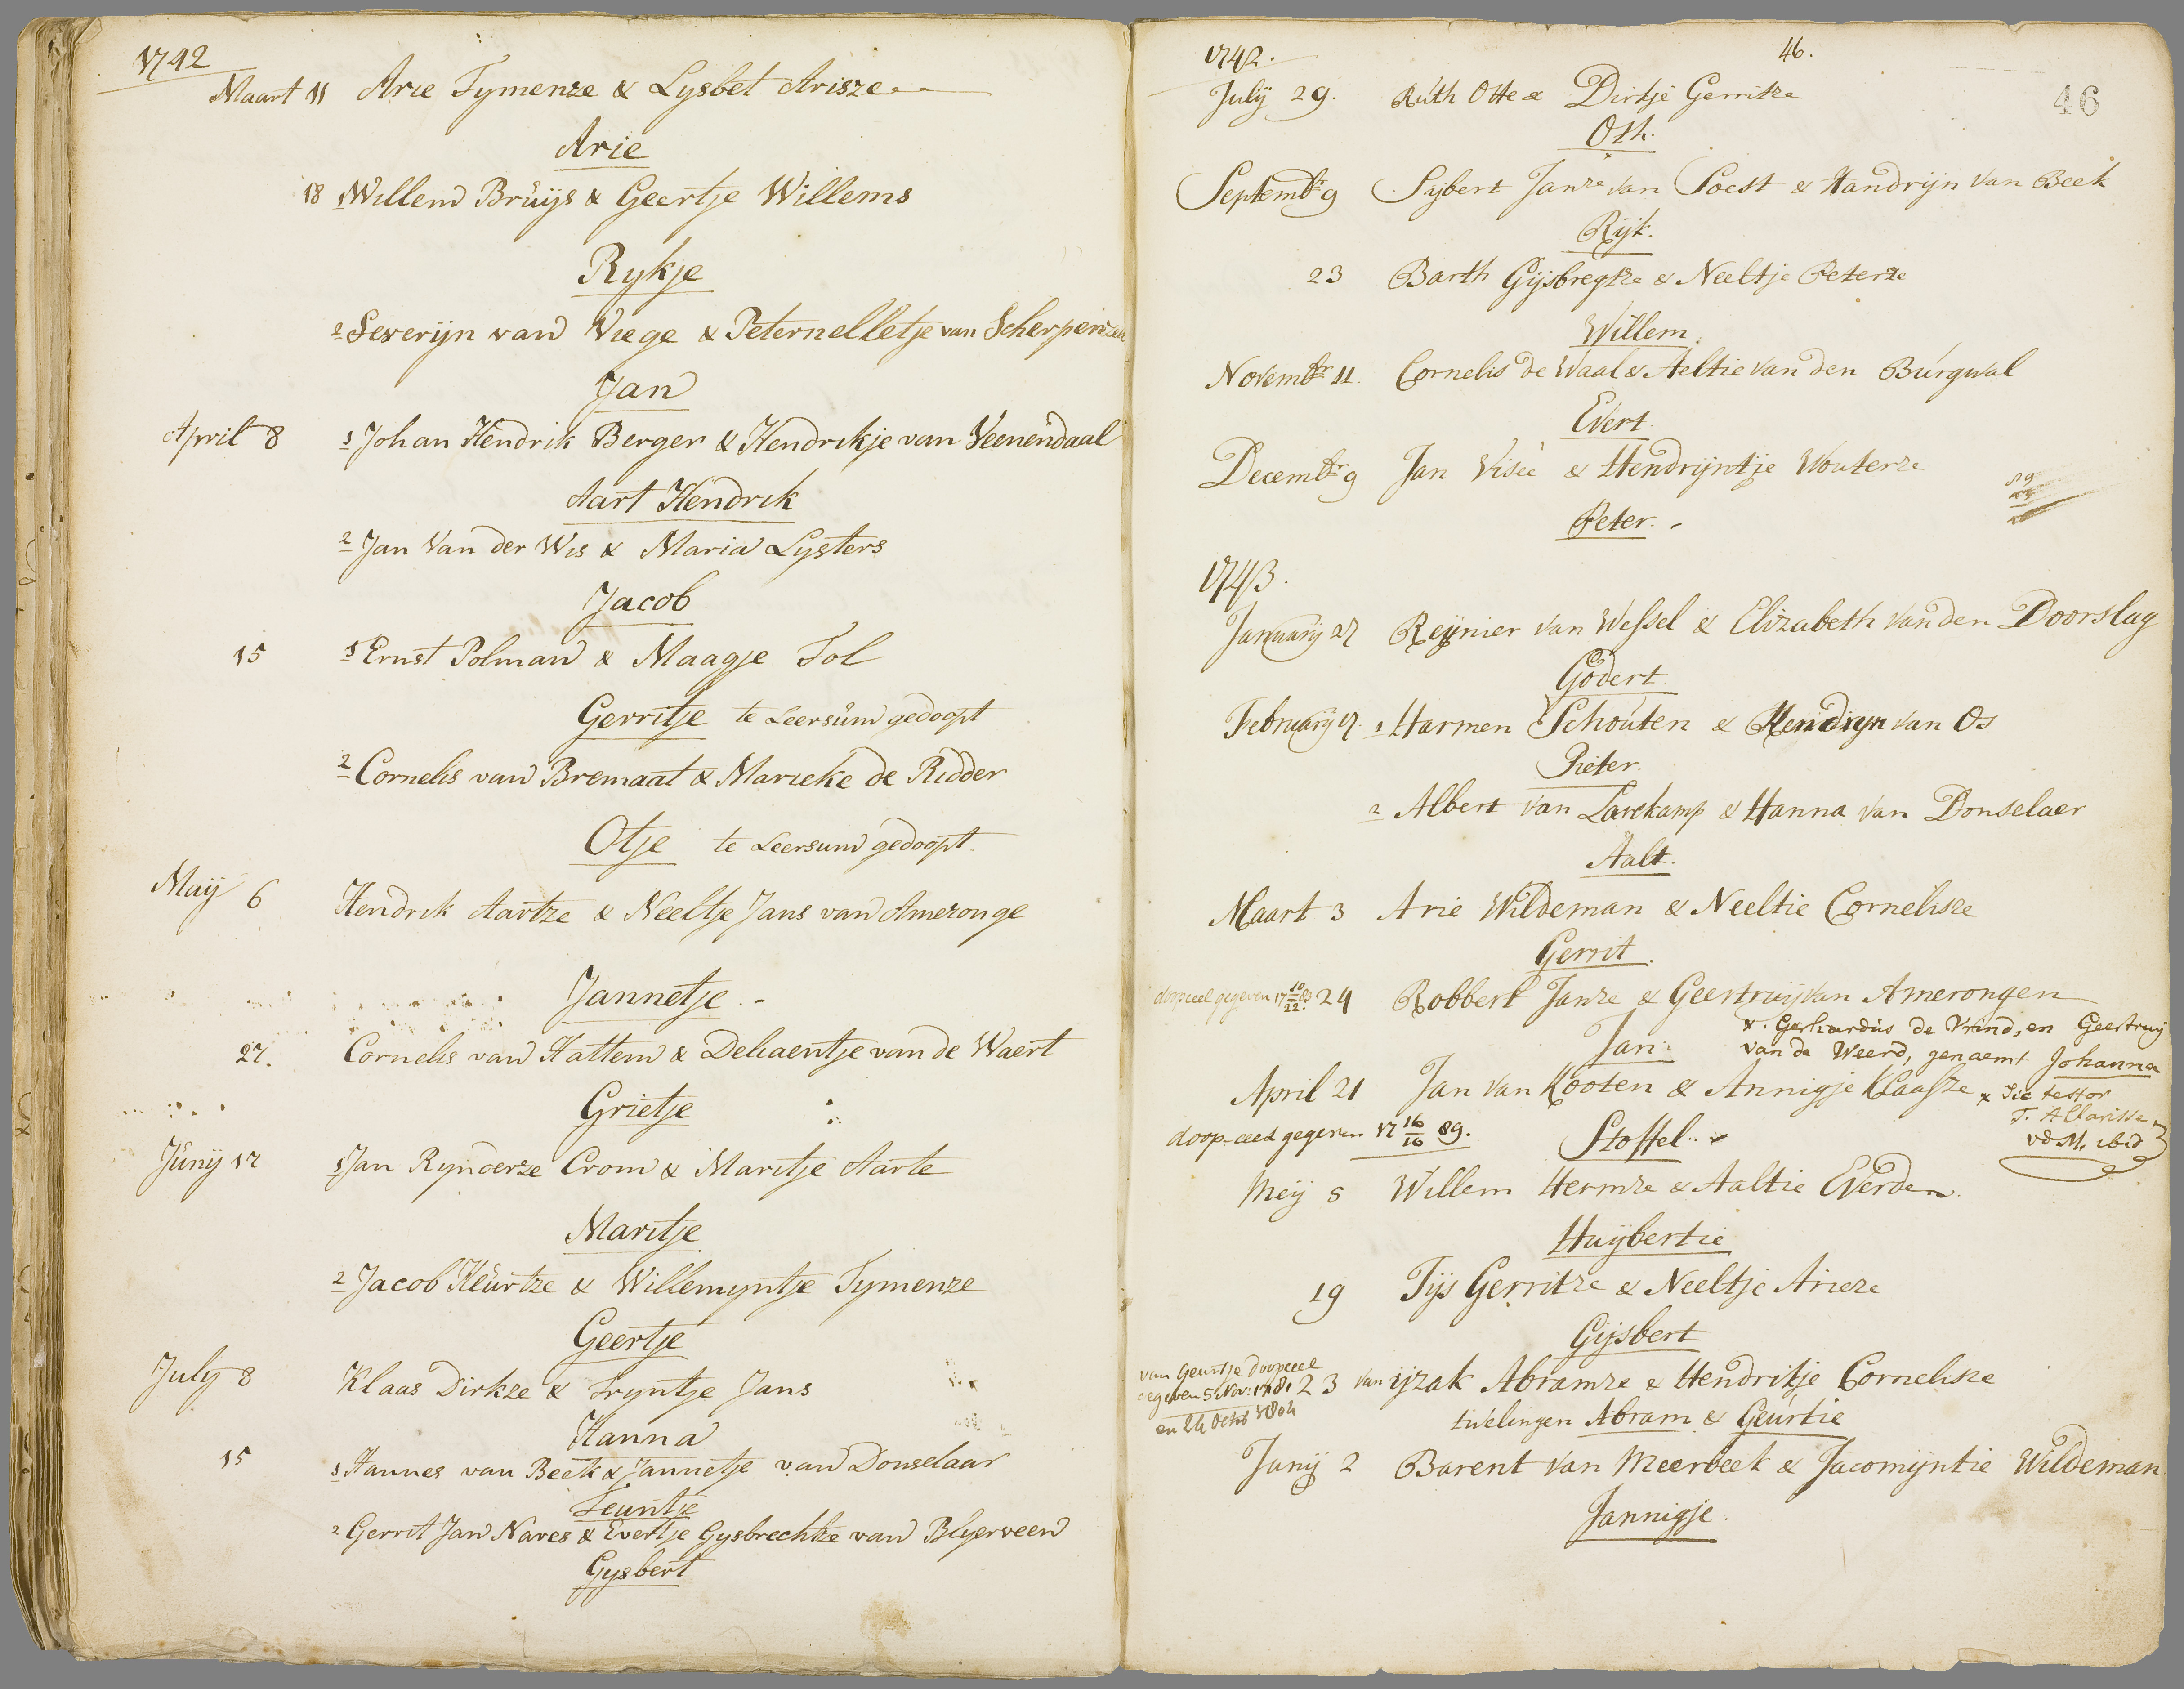 1742
Maart 11 Arie Tymenze & Lysbet Arisze
Arie
18 1 Willem Bruijs & Geertje Willems
Rykje
2 Severijn van Viege & Peternelletje van Scherpenzeel
Jan
April 8 1 Johan Hendrik Berger & Hendrikje van Veenendaal
Aart Hendrik
2 Jan Van der Wis & Maria Lysters
Jacob
15 1 Ernst Polman & Maagje Tol
Gerritje te Leersum gedoopt
2 Cornelis van Bremaat & Marieke de Ridder
Otje te Leersum gedoopt
Maij 6 Hendrik Aartze & Neeltje Jans van Ameronge
Jannetje
27. Cornelis van Hattem & Deliaentje van de Waert
Grietje
Junij 17 1 Jan Rynderze Crom & Maritje Aarte
Maritje
2 Jacob Heurtze & Willemyntje Tymenze
Geertje
July 8 Klaas Dirkze & Tryntje Jans
Hanna
15 1 Hannes van Beek & Jannetje van Donselaar
Teuntje
2 Gerrit Jan Naves & Evertje Gysbrechtze van Blyerveen
Gysbert
1742. 46.
46
Julij 29. Ruth Otte & Dirkje Gerritze
Oth.
Septembr 9 Sijbert Janze van Soest & Handrijn Van Beek
Rijk.
23 Barth Gijsbregtze & Neeltje Peterze
Willem.
Novembr 11. Cornelis de Waal & Aeltie van den Burgwal
Evert.
Decembr 9 Jan Viseè & Hendrijntje Wouterze
Peter.
1743.
Januarij 27 Reijnier van Wessel & Elizabeth van den Doorslag
Godert.
Februarij 17. 1 Harmen Schouten & Hendryn van Os
Pieter.
2 Albert van Lavekamp & Hanna van Donselaer
Aalt.
Maart 3 Arie Wildeman & Neeltie Cornelisze
Gerrit.
doopceel gegeven 24 Robbert Janze & Geertruij van Amerongen
Jan. x. Gerhardus de Vrind, en Geertruij
van de Weerd, genaemt Johanna
April 21 Jan van Kooten & Annigje Klaasze x Sic testor
doop-ceel gegeven 17 16/10 89. Stoffel
vd M. ibid
Meij 5 Willem Hermze & Aaltie Everden.
Huijbertie
19 Tijs Gerritze & Neeltje Arieze
Gijsbert
van Geurtje doopceel
gegeven 5 Nov: 1781 23 van ijzak Abramze & Hendrikje Cornelisze
en 24 Octbr 1804 twelingen Abram & Geurtie
Junij 2 Barent van Meerbeek & Jacomijntie Wildeman
Jannigje.